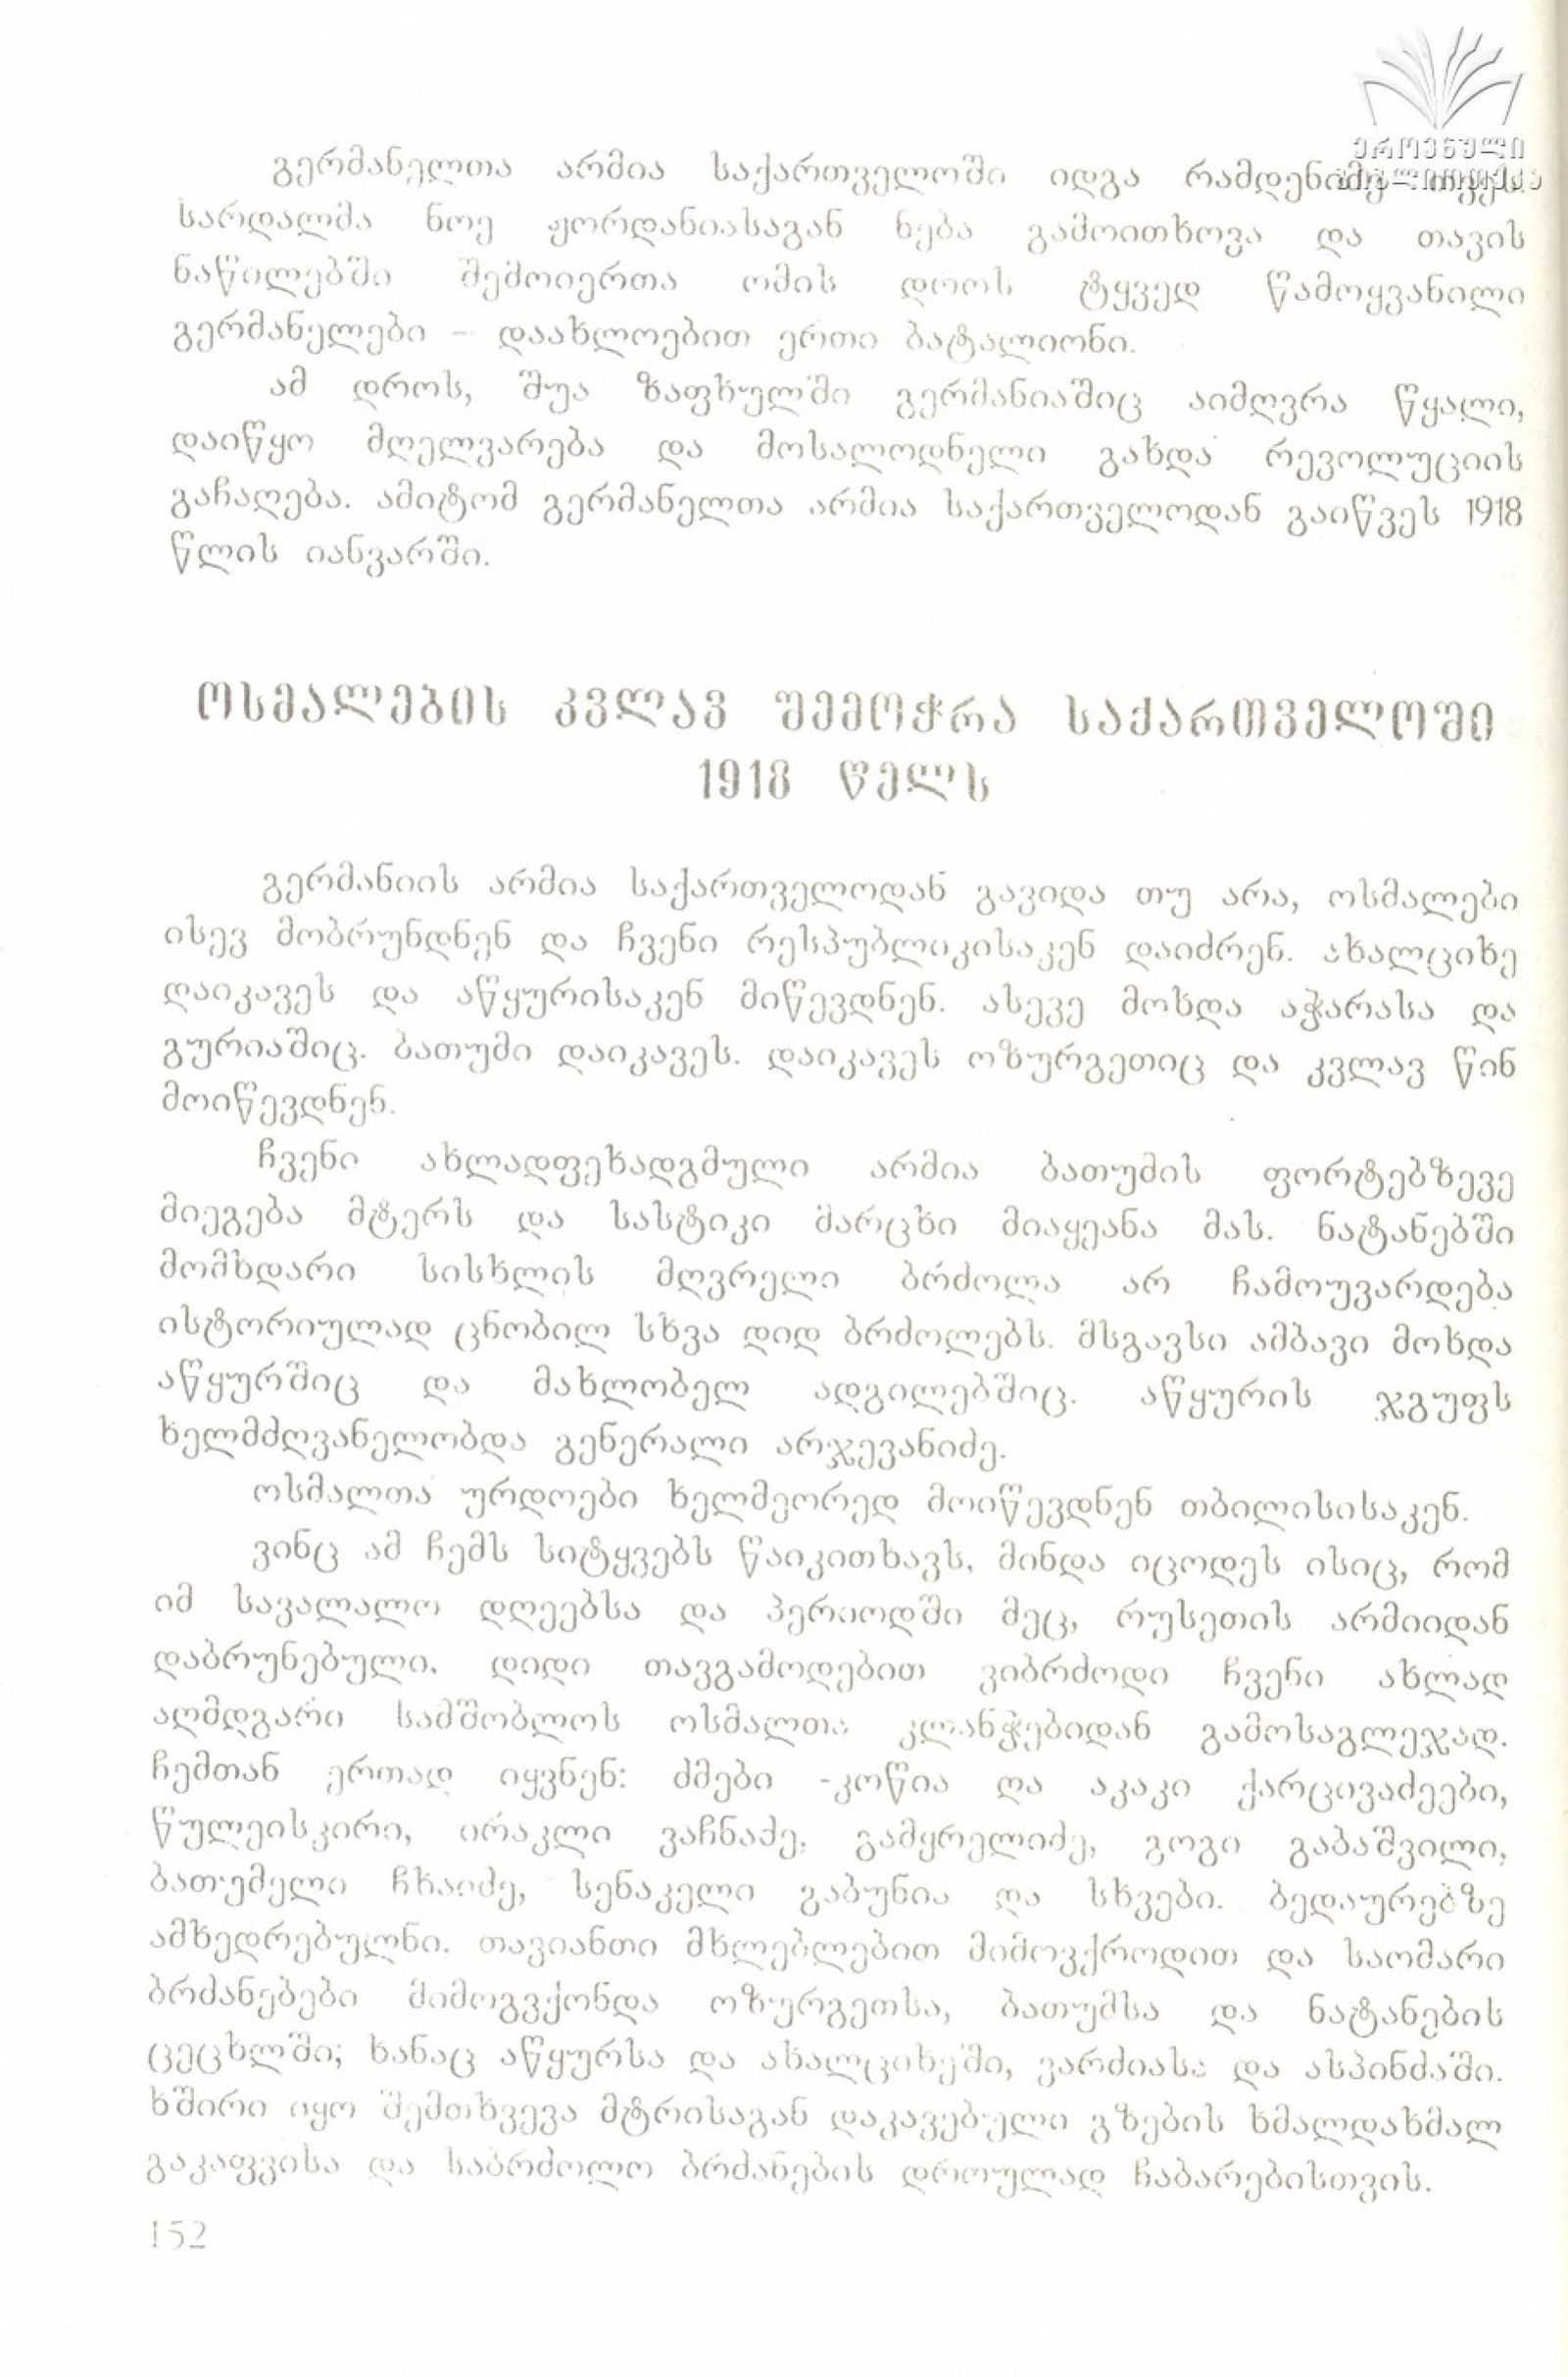 ეროვნული
ბიბლიოთეკა
გერმანელთა არმია საქართველოში იდგა რამდენიმე თვეს.
სარდალმა ნოე ჟორდანიასაგან ნება გამოითხოვა და თავის
ნაწილებში შემოიერთა ომის დროს ტყვედ წამოყვანილი
გერმანელები – დაახლოებით ერთი ბატალიონი.
ამ დროს, შუა ზაფხულში გერმანიაშიც აიმღვრა წყალი,
დაიწყო მღელვარება და მოსალოდნელი გახდა რევოლუციის
გაჩაღება. ამიტომ გერმანელთა არმია საქართველოდან გაიწვეს 1918
წლის იანვარში.
ოსმალების კვლავ შემოჭრა საქართველოში
1918 წელს
გერმანიის არმია საქართველოდან გავიდა თუ არა, ოსმალები
ისევ მობრუნდნენ და ჩვენი რესპუბლიკისაკენ დაიძრენ. ახალციხე
დაიკავეს და აწყურისაკენ მიწევდნენ. ასევე მოხდა აჭარასა და
გურიაშიც. ბათუმი დაიკავეს. დაიკავეს ოზურგეთიც და კვლავ წინ
მოიწევდნენ.
ჩვენი ახლადფეხადგმული არმია ბათუმის ფორტებზევე
მიეგება მტერს და სასტიკი მარცხი მიაყენა მას. ნატანებში
მომხდარი სისხლის მღვრელი ბრძოლა არ ჩამოუვარდება
ისტორიულად ცნობილ სხვა დიდ ბრძოლებს. მსგავსი ამბავი მოხდა
აწყურშიც და მახლობელ ადგილებშიც. აწყურის ჯგუფს
ხელმძღვანელობდა გენერალი არჯევანიძე.
ოსმალთა ურდოები ხელმეორედ მოიწევდნენ თბილისისაკენ.
ვინც ამ ჩემს სიტყვებს წაიკითხავს, მინდა იცოდეს ისიც, რომ
იმ სავალალო დღეებსა და პერიოდში მეც, რუსეთის არმიიდან
დაბრუნებული, დიდი თავგამოდებით ვიბრძოდი ჩვენი ახლად
აღმდგარი სამშობლოს ოსმალთა კლანჭებიდან გამოსაგლეჯად.
ჩემთან ერთად იყვნენ: ძმები -კოწია და აკაკი ქარცივაძეები,
წულეისკირი, ირაკლი ვაჩნაძე, გამყრელიძე, გოგი გაბაშვილი,
ბათუმელი ჩხაიძე, სენაკელი გაბუნია და სხვები. ბედაურებზე
ამხედრებულნი, თავიანთი მხლებლებით მიმოვქროდით და საომარი
ბრძანებები მიმოგვქონდა ოზურგეთსა, ბათუმსა და ნატანების
ცეცხლში; ხანაც აწყურსა და ახალციხეში, ვარძიასა და ასპინძაში.
ხშირი იყო შემთხვევა მტრისაგან დაკავებული გზების ხმალდახმალ
გაკაფვისა და საბრძოლო ბრძანების დროულად ჩაბარებისთვის.
152